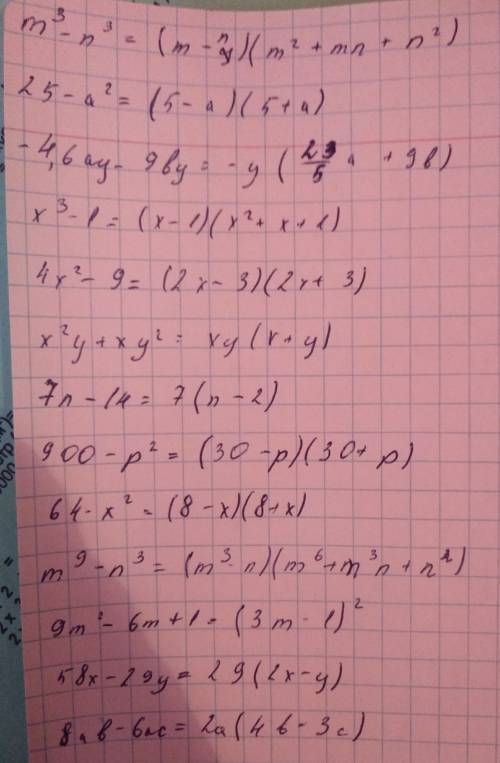 m³ - n³ = (m - n)(m² + mn + n²)
25 - a² = (5 - a)(5 + a)
- 4,6ay - 9by = - y (23/5 a + 9b)
x³ - 1 = (x - 1)(x² + x + 1)
4x² - 9 = (2x - 3)(2x + 3)
x²y + xy² = xy (x + y)
7n - 14 = 7(n - 2)
900 - p² = (30 - p)(30 + p)
64 - x² = (8 - x)(8 + x)
m⁹ - n³ = (m³ - n)(m⁶ + m³n + n²)
9m² - 6m + 1 = (3m - 1)²
58x - 29y = 29(2x - y)
8ab - 6ac = 2a(4b - 3c)